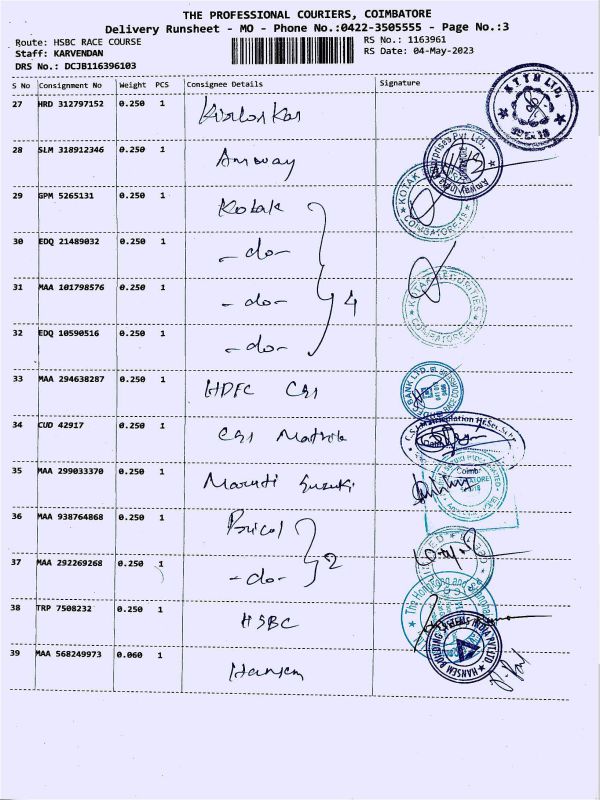 THE PROFESSIONAL COURIERS, COIMBATORE
Delivery Runsheet - MO - Phone No.:0422-3505555 - Page No.:3
Route: HSBC RACE COURSE
RS No.: 1163961
Staff: KARVENDAN
RS Date: 04-May-2023
DRS No.: DCJB116396103
S No Consignment No Weight PCS Consignee Details Signature
27 HRD 312797152 0.250 1 Kirloskar
KTTM LTD.
28 SLM 318912346 0.250 1 Amway
29 GPM 5265131 0.250 1 Kotak
KOTAK
COIMBATORE-18
30 EDQ 21489032 0.250 1 -do-
31 MAA 101798576 0.250 1 -do- 4
KOTAK SECURITIES
COIMBATORE
32 EDQ 10590516 0.250 1 -do-
33 MAA 294638287 0.250 1 HDFC CBE
HDFC BANK LTD.
34 CUD 42917 0.250 1 CSI Matric
C.S.I. Matriculation Hr.Sec.Sch.
35 MAA 299033370 0.250 1 Maruti Suzuki
36 MAA 938764868 0.250 1 Pricol
37 MAA 292269268 0.250 1 -do- 2
38 TRP 7508232 0.250 1 HSBC
The Hongkong and Shanghai
39 MAA 568249973 0.060 1 Hansem
HANSEM BUILDING SYSTEMS INDIA PVT LTD